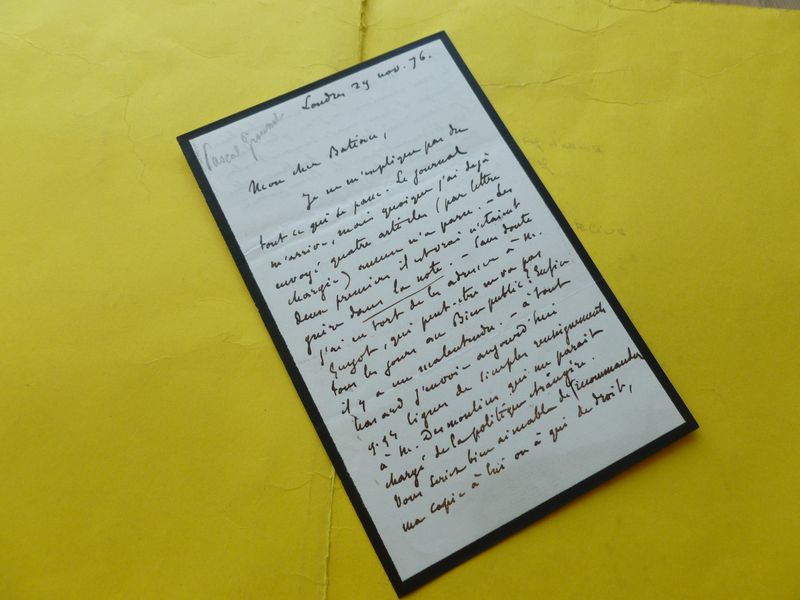 Londres 29 nov. 76.
Pascal Grousset
Mon cher Batiau,
Je ne m'explique pas du
tout ce qui se passe. Le journal
m'arrive, mais quoique j'ai déjà
envoyé quatre articles (par lettre
chargée) aucun n'a paru. – Les
deux premiers il est vrai n'étaient
guère dans la note. – Sans doute
j'ai eu tort de les adresser à M.
Guyot, qui peut-être ne va pas
tous les jours au Bien public? Enfin
il y a un malentendu. – à tout
hasard j'envoie aujourd'hui
lignes de simples renseignements
à M. Desmoulins qui me paraît
chargé de la politique étrangère.
Vous seriez bien aimable de recommander
ma copie à lui ou à qui de droit,